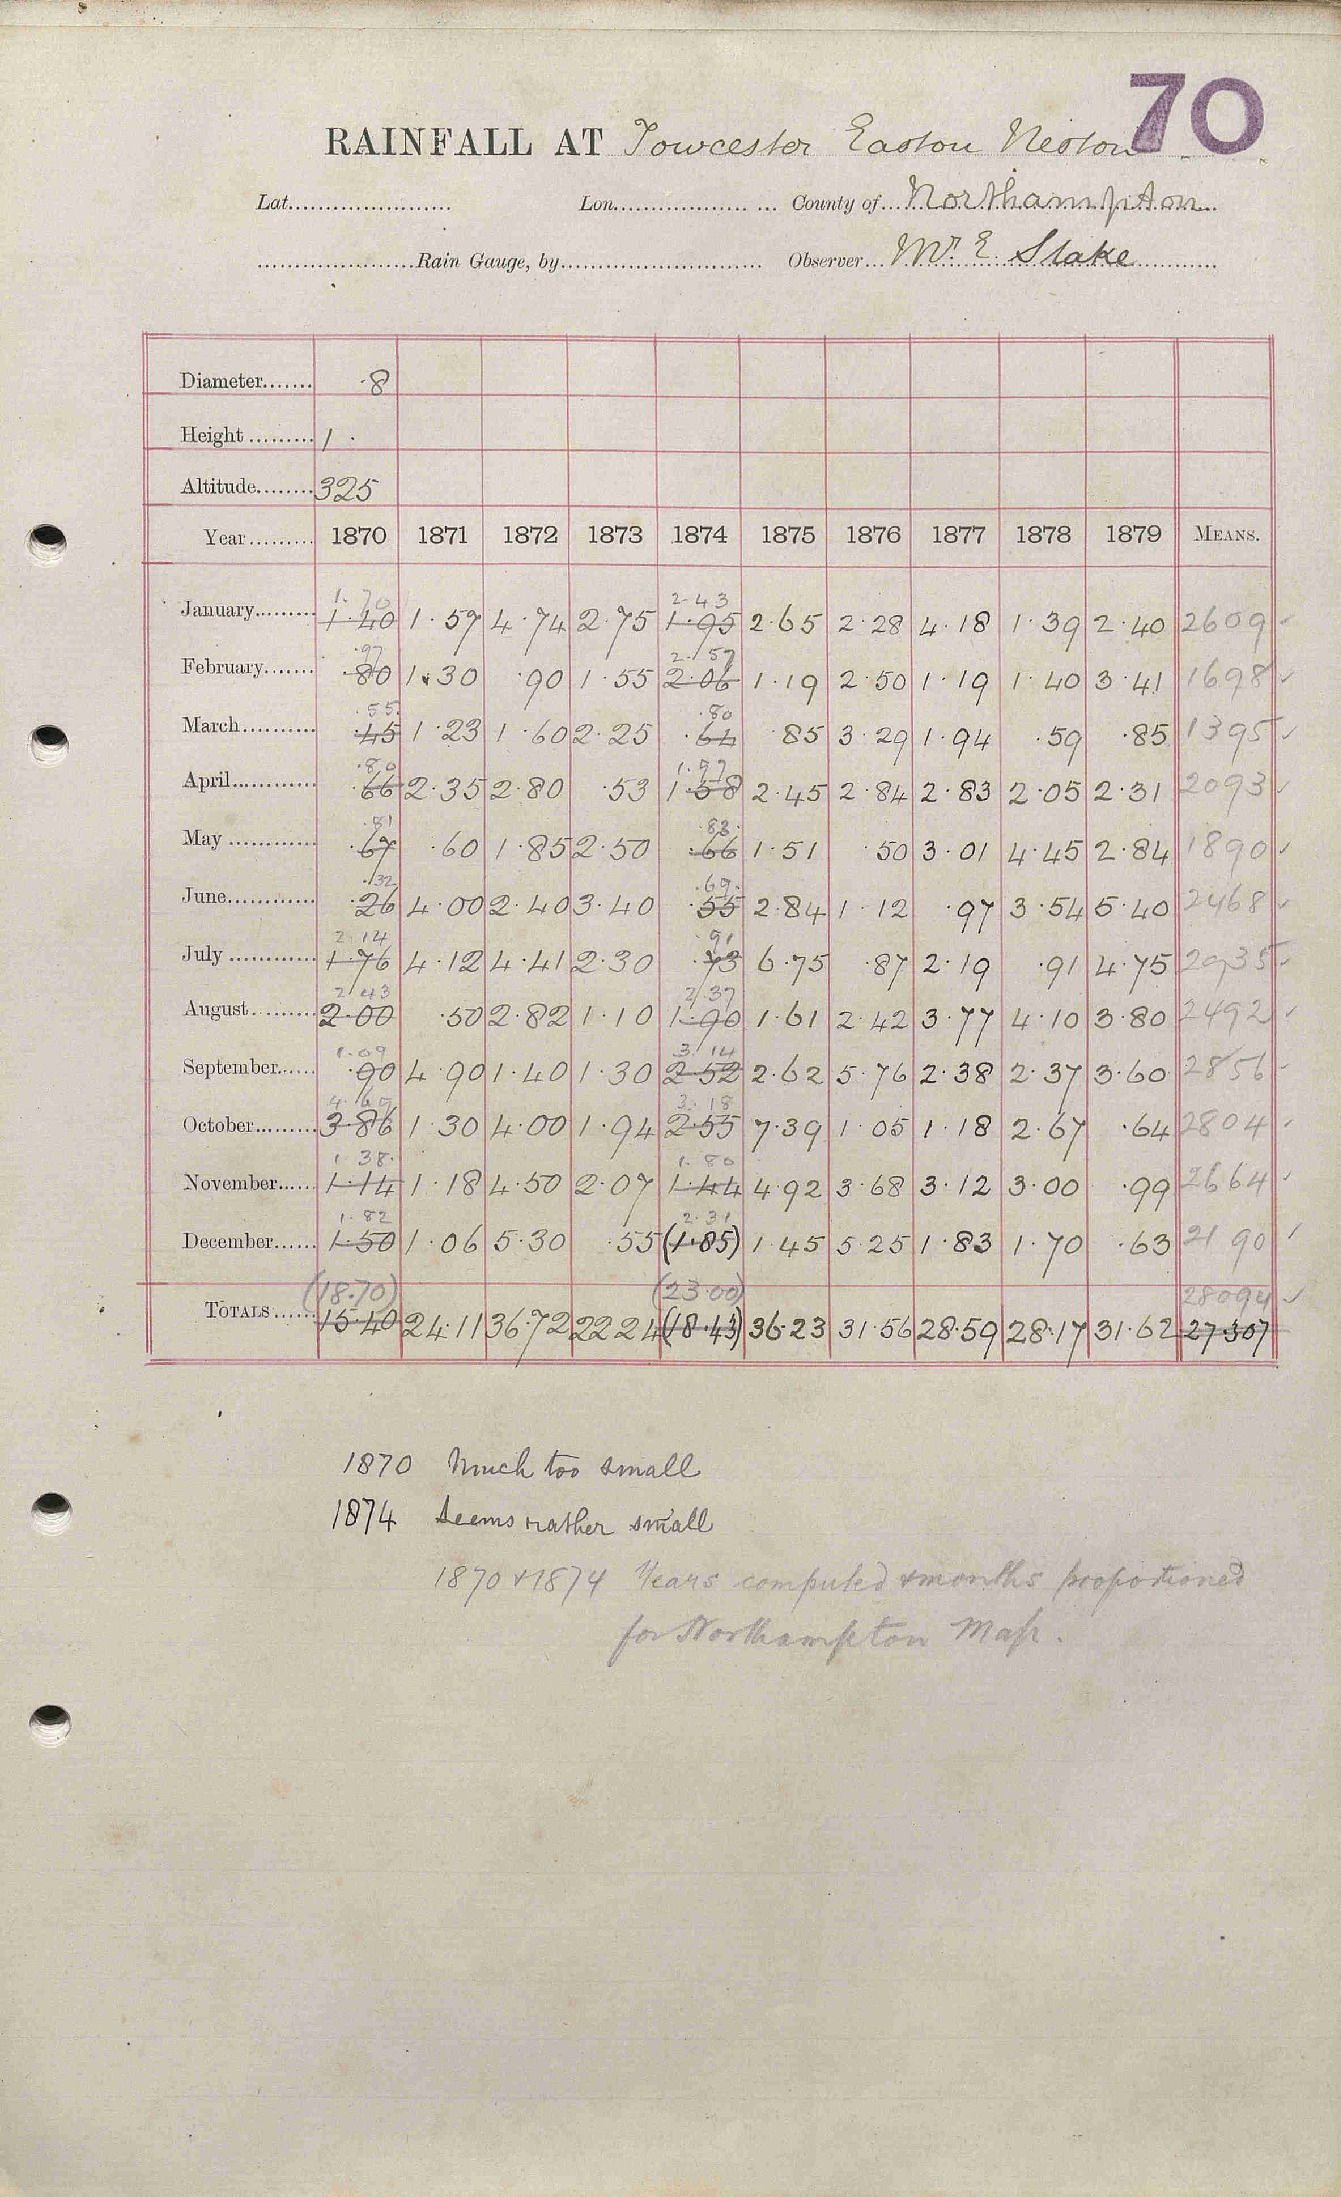 70
RAINFALL AT Towcester Easton Neston
Lat. Lon. County of Northampton
Rain Gauge, by Observer Mr. E Slake
Diameter ·8
Height 1 ·
Altitude 325
Year 1870 1871 1872 1873 1874 1875 1876 1877 1878 1879 MEANS.
1.70 2.43
January 1·40 1·57 4·74 2·75 1·95 2·65 2·28 4·18 1·39 2·40 2609 ✓
·97 2.57
February ·80 1·30 ·90 1·55 2·06 1·19 2·50 1·19 1·40 3·41 1698 ✓
·55 ·80
March ·45 1·23 1·60 2·25 ·64 ·85 3·29 1·94 ·59 ·85 1395 ✓
·80 1.97
April ·66 2·35 2·80 ·53 1·58 2·45 2·84 2·83 2·05 2·31 2093 ✓
·81 ·83
May ·67 ·60 1·85 2·50 ·66 1·51 ·50 3·01 4·45 2·84 1890 ✓
·32 ·69
June ·26 4·00 2·40 3·40 ·55 2·84 1·12 ·97 3·54 5·40 2468 ✓
2.14 ·91
July 1·76 4·12 4·41 2·30 ·73 6·75 ·87 2·19 ·91 4·75 2935 ✓
2.43 2.37
August 2·00 ·50 2·82 1·10 1·90 1·61 2·42 3·77 4·10 3·80 2492 ✓
1.09 3.14
September ·90 4·90 1·40 1·30 2·52 2·62 5·76 2·38 2·37 3·60 2856 ✓
4.69 3.18
October 3·86 1·30 4·00 1·94 2·55 7·39 1·05 1·18 2·67 ·64 2804 ✓
1.38 1.80
November 1·14 1·18 4·50 2·07 1·44 4·92 3·68 3·12 3·00 ·99 2664 ✓
1.82 2.31
December 1·50 1·06 5·30 ·55 (1·85) 1·45 5·25 1·83 1·70 ·63 2190 ✓
(18.70) (23.00) 28094 ✓
TOTALS 15·40 24·11 36·72 22 24 (18·43) 36·23 31·56 28·59 28·17 31·62 27 307
1870 Much too small
1874 Seems rather small
1870 + 1874 Years computed & months proportioned
for Northampton Map.